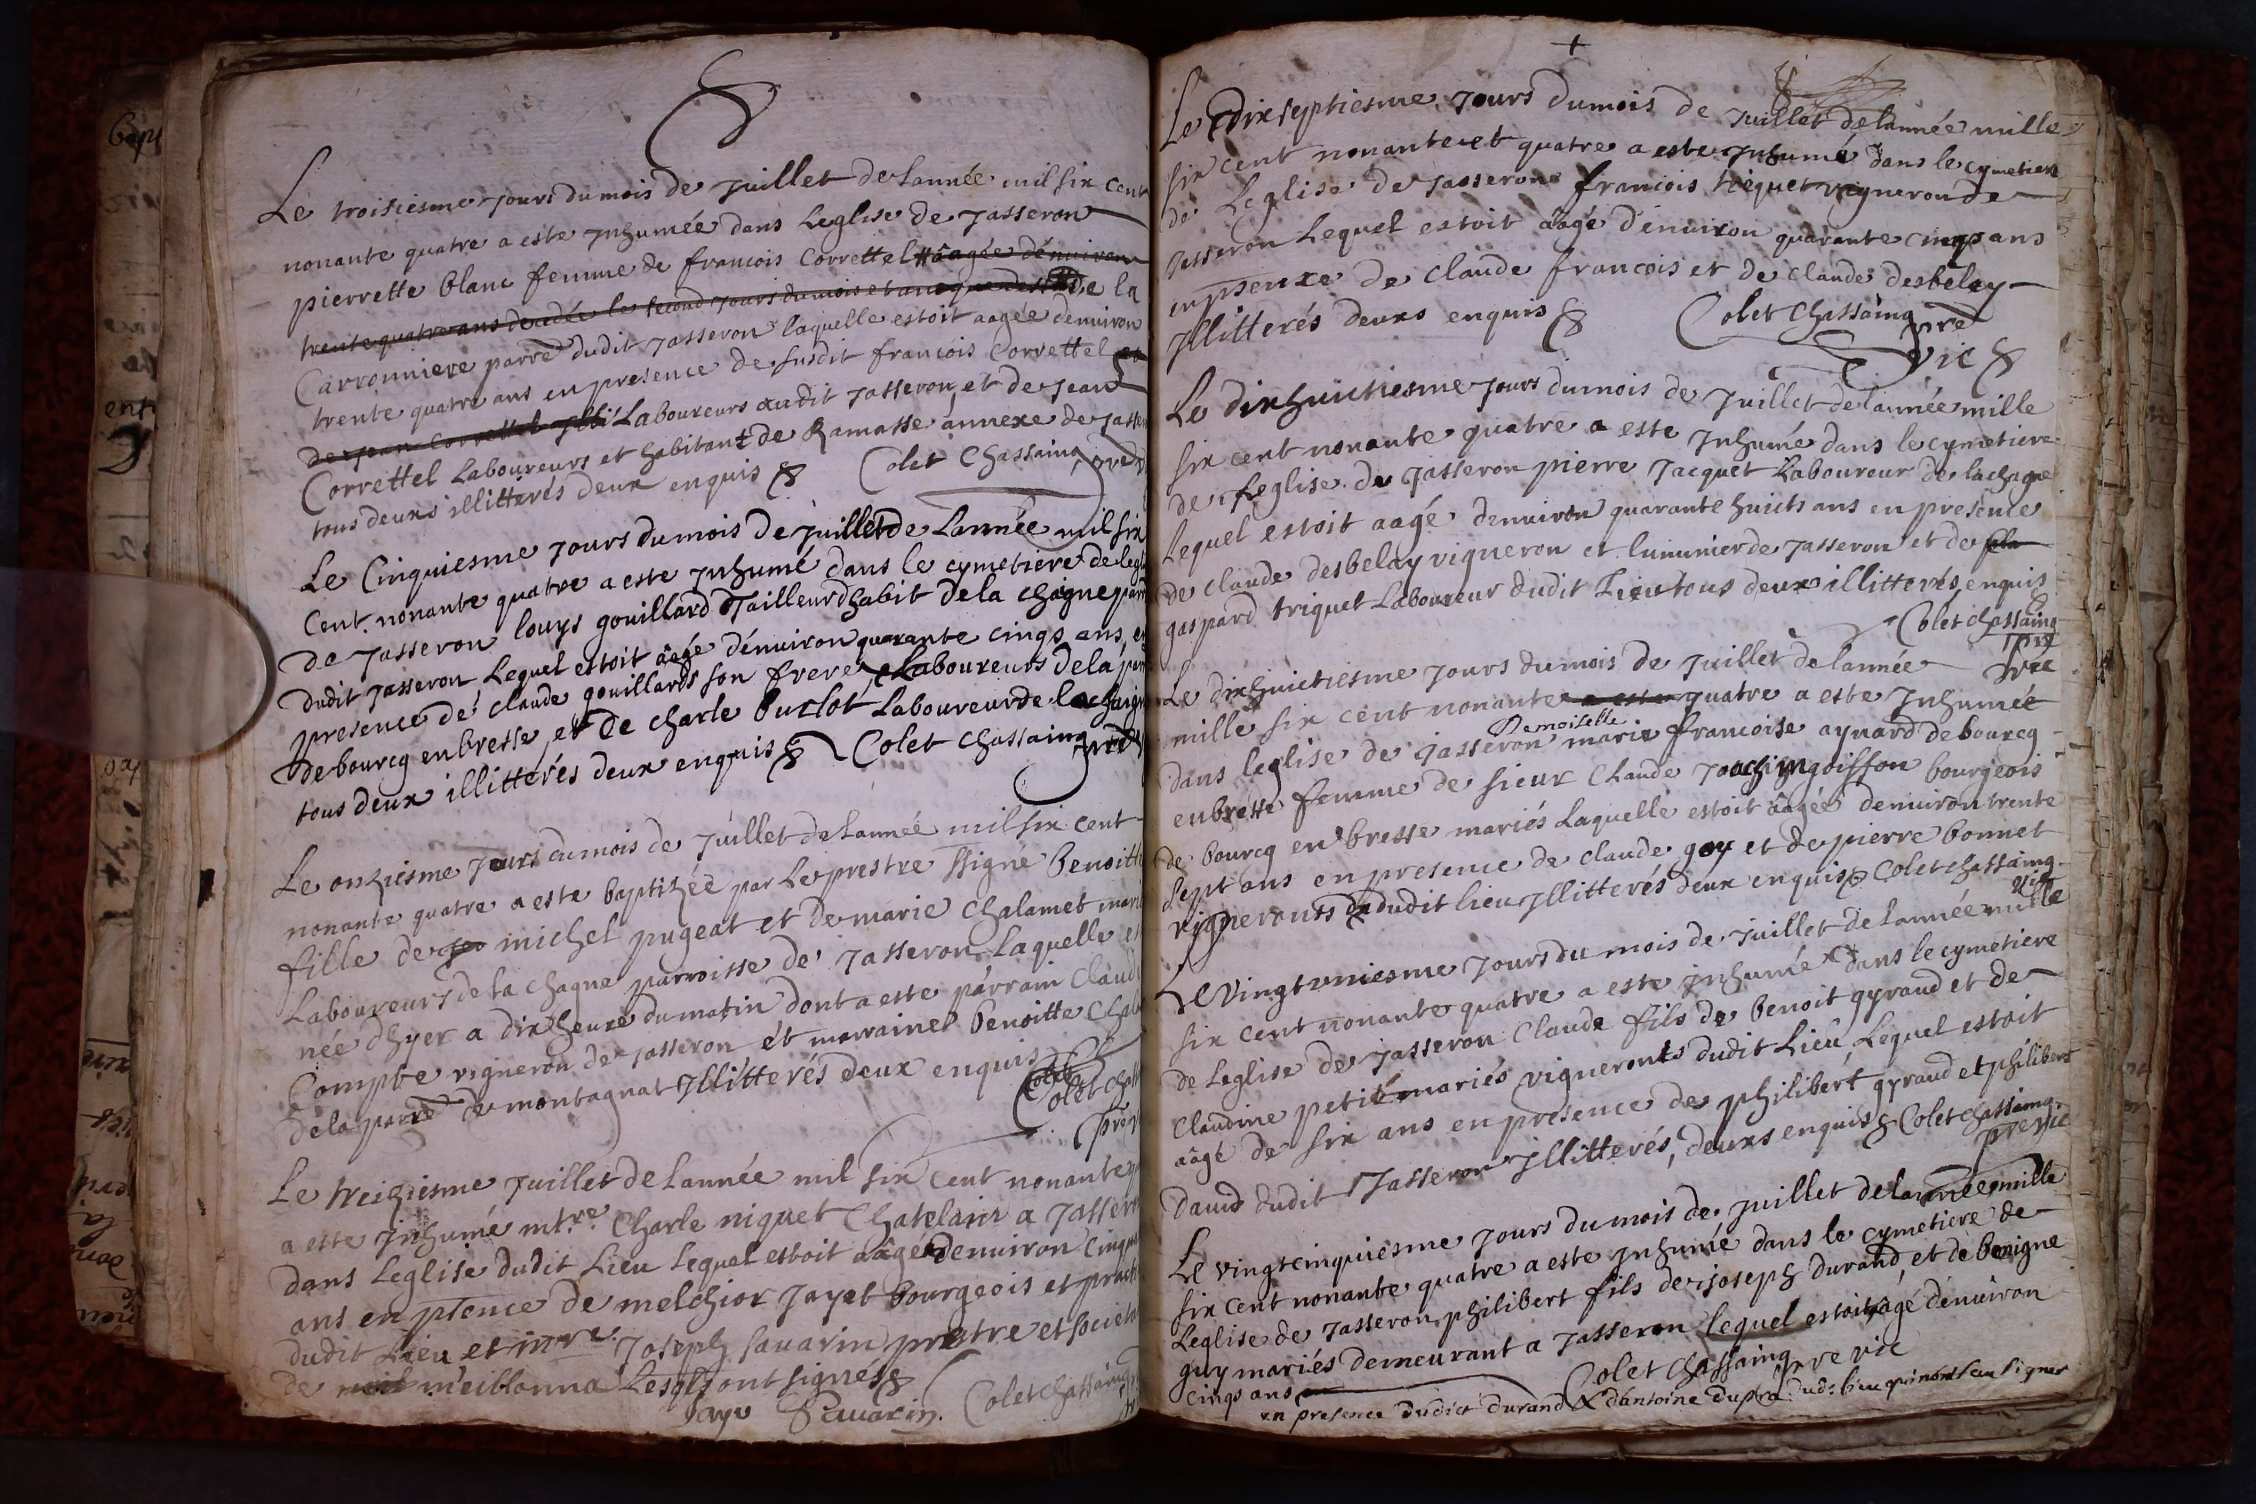 Le troisiesme jours du mois de Juillet de Lannée mil six cent
nonante quatre a este Inhumée dans Leglise de Jasseron
pierrette blanc femme de francois Correttel aagée dénuiron
trente quatre ans decedée le second jours du mois et an que dessus de la
Carronniere parre dudit Jasseron laquelle estoit aagée denuiron
trente quatre ans en presence de susdit francois Correttel et
de Jean Correttel Laboureurs audit Jasseron et de Jean
Correttel Laboureurs et habitant de Ramasse annexe de Jasse
tous deuxs illitterés deux enquis Colet Chassaing pre
Le Cinquiesme Jours du mois de Juillet de Lannée mil six
Cent nonante quatre a este Inhumé dans le cymetiere de legl
de Jasseron louys gouillard Tailleur dhabit de la chagne parr
dudit Jasseron Lequel estoit aagé dénuiron quarante cinqs ans en
presence de claude gouillards son frere Laboureurs de la parr
de bourcq en bresse et de charle buclot Laboureur de la chaign
tous deux illitterés deux enquis Colet Chassaing pre
Le onziesme Jours du mois de Juillet de Lannée mil six cent
nonante quatre a este baptizée par Le prestre ssigné Benoitte
fille de michel pugeat et de marie Chalamet mari
Laboureurs de la Chagne parroisse de Jasseron Laquelle es
née dhyer a dix heure du matin dont a este parrain Claude
Compte vigneron de Jasseron et marrainel benoitte Chala
de la parre de montagnat Jllitterés deux enquis
Colet
Colet Chass
pre
Le treiziesme Juillet de Lannée mil six Cent nonante
a este Inhumé mtre Charle niquet Chatelain a Jassero
dans Leglise dudit Lieu Lequel estoit aagé denuiron Cinqu
ans en pnce de melchior Jayet bourgeois et prati
dudit Lieu et mre Joseph sauarin prêtre et societa
de meillonna Lesqls ont signés
Jaye Sauarin Colet Chassaing
+
Le Dix septiesme Jours du mois de Juillet de lannée mille
six cent nonante et quatre a este Inhumé dans le cymetiere
de Leglise de Jasseron francois triquet vigneron de
Jasseron Lequel estoit aagé d'énuiron quarante cinqs ans
en psence de claude francois et de claude desbelay
Jllitterés deuxs enquis Colet Chassaing pre
vic
Le Dixhuictiesme Jours du mois de Juillet de lannée mille
six cent nonante quatre a este Inhumé dans le cymetiere
de Leglise de Jasseron pierre Jacquet Laboureur de la chagne
Lequel estoit aagé denuiron quarante huicts ans en presence
de claude desbelay vigneron et luminier de Jasseron et de
gaspard triquet Laboureur dudit Lieu tous deux illitterés enquis
Colet chassaing
pre
vic
Le Dixhuictiesme Jours du mois de Juillet de lannée
mille six cent nonante a este quatre a este Inhumée
dans leglise de Jasseron Demoiselle marie francoise aynard de bourcq
en bresse femme de sieur Claude Joachim goiffon bourgeois
de bourcq en bresse mariés Laquelle estoit aagée denuiron trente
sept ans en presence de claude goy et de pierre bonnet
vignerons dudit lieu Jllitterés deux enquis Colet chassaing
vic
Le Vingtuniesme Jours du mois de Juillet de lannée mille
six cent nonante quatre a este inhumé dans le cymetiere
de Leglise de Jasseron Claude fils de Benoit gyraud et de
Claudine petit mariés vigneronts dudit Lieu Lequel estoit
aagé de six ans en presence de philibert gyraud et philibert
dauid dudit Jasseron Jllitterés, deuxs enquis Colet Chassaing
pre vic
Le vingtcinquiesme Jours du mois de Juillet de lannée mille
six cent nonante quatre a este Inhumé dans le cymetiere de
Leglise de Jasseron philibert fils de joseph durand et de benigne
guy mariés demeurant a Jasseron lequel estoit aagé dénuiron
cinqs ans Colet Chassaing pre vic
en presence dudict durand & dantoine dupra dud. lieu qui n'ont sceu signer